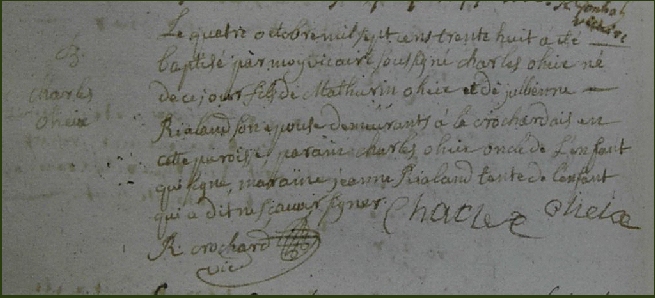 Le quatre octobre mil sept cens trente huit a été
B.
baptisé par moy vicaire soussigné charles oheix né
charles
de ce jour fils de Mathurin oheix et de jullienne
Oheix
Rialand son epouse demeurants a la crochardais en
cette paroisse, parain charles oheix oncle de L'enfant
qui signe, maraine jeanne Rialand tante de l'enfant
qui a dit ne scavoir signer. Charles Oheix
R crochard
vic